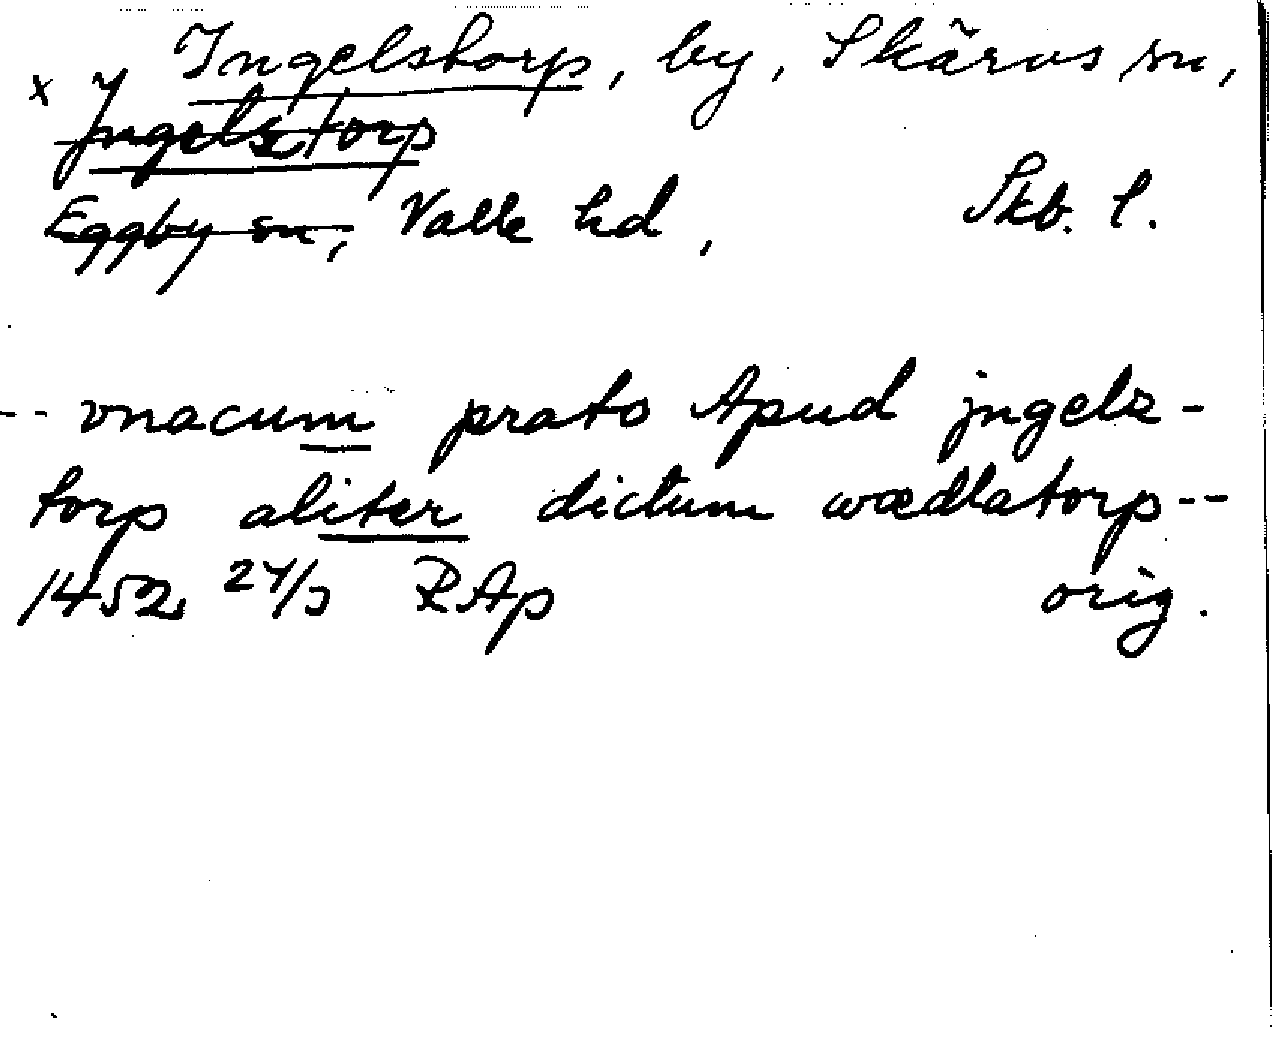 x y Ingelstorp, by, Skärvs sn,
Jngelstorp
Eggby sn, Valle hd, Skb. l.
-- vnacum prato Apud jngelz-
torp aliter dictum wædlatorp--
1452 24/3 RAp orig.